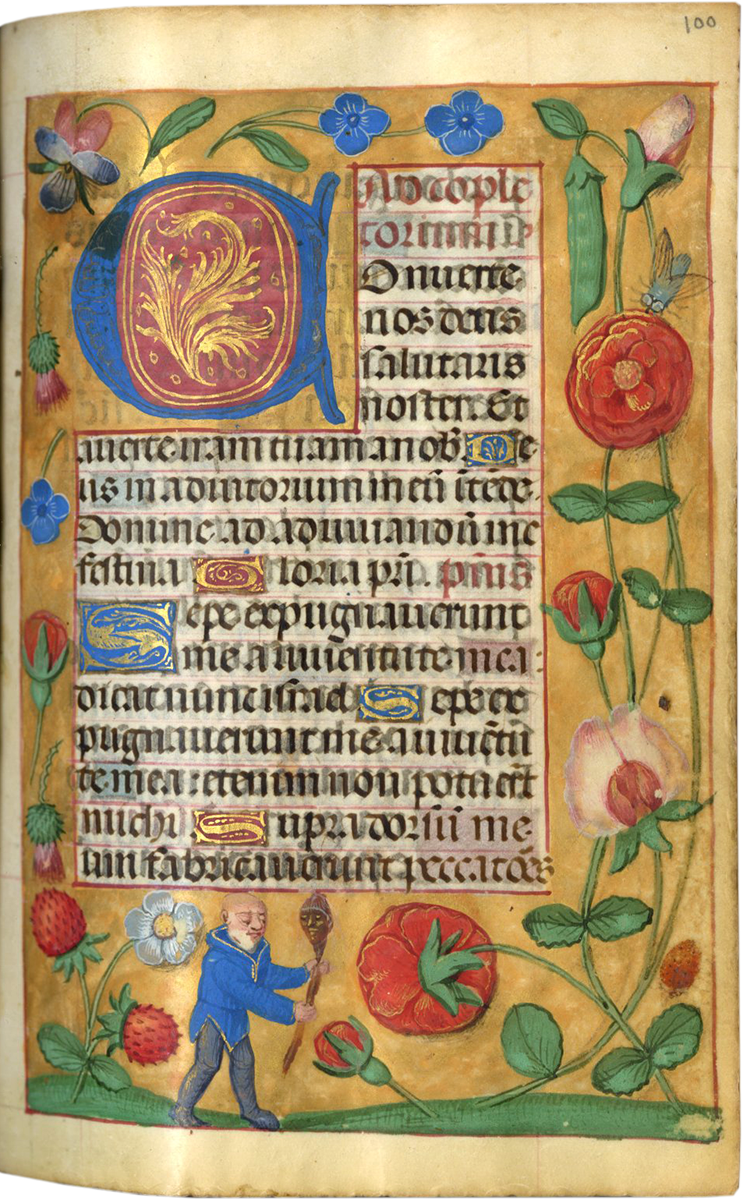 100
Ad cõple
torium
Conuerte
nos deus
salutaris
noster. Et
auerte iram tuam a nob. De
us in adiutorium meũ ĩtẽde.
Domine ad adiuuandũ me
festina Gloria pri. psus
Sepe expugnauerunt
me a iuuentute mea:
dicat nunc israel Sepe ex
pugnauerunt me a iuuẽtu
te mea: etenim non potuerũt
michi Supra dorsũ me
um fabricauerunt peccatões